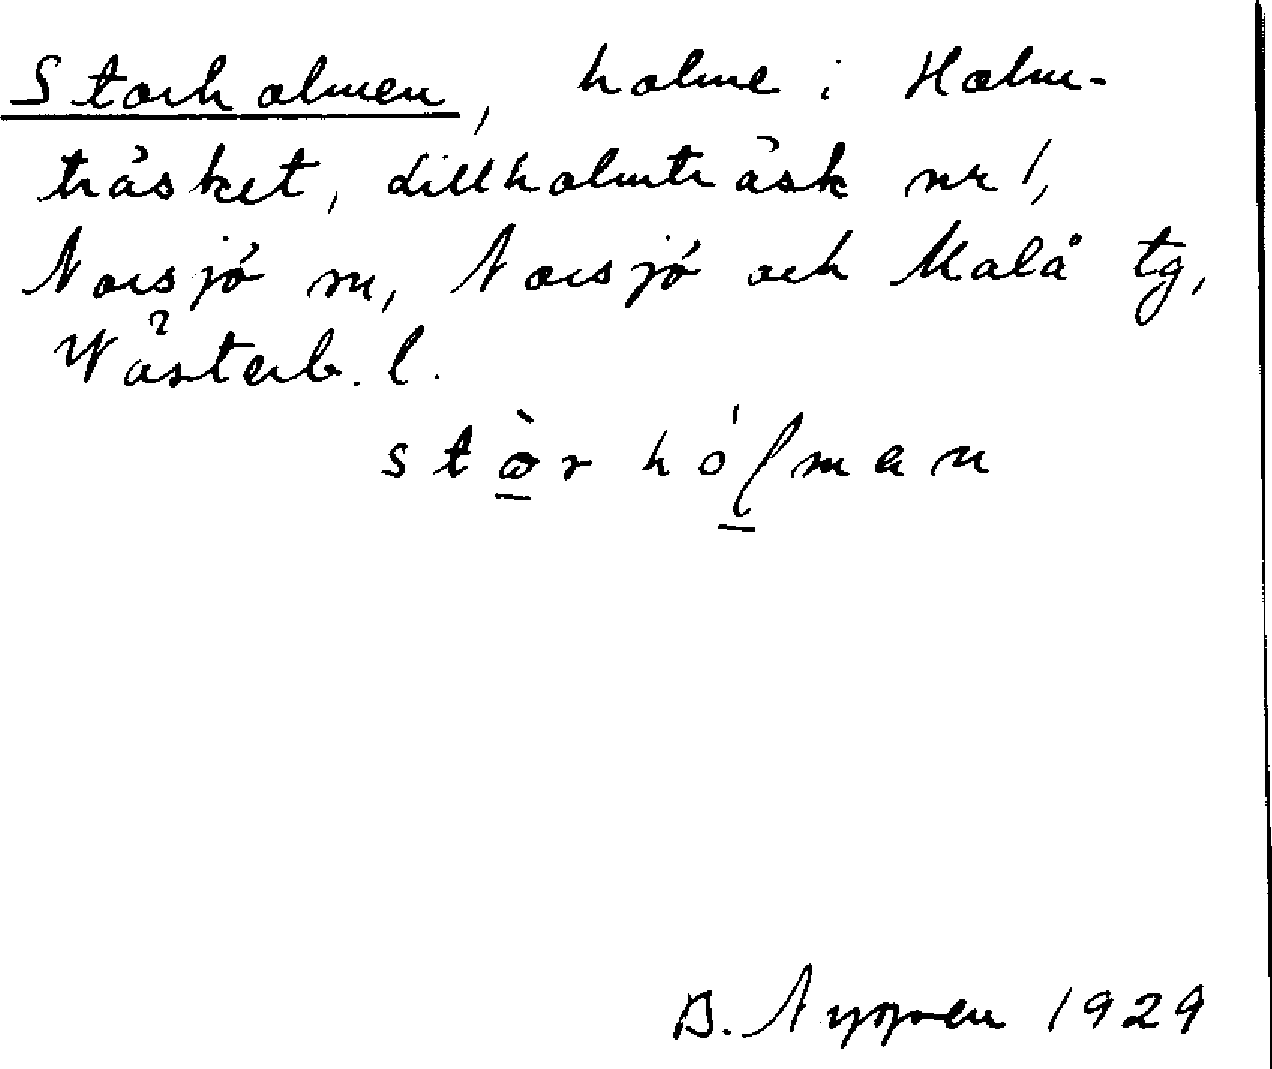 Storholmen, holme i Holm-
träsket, Lillholmträsk nr 1,
Norsjö sn, Norsjö och Malå tg,
Västerb. l.
stòrhólman